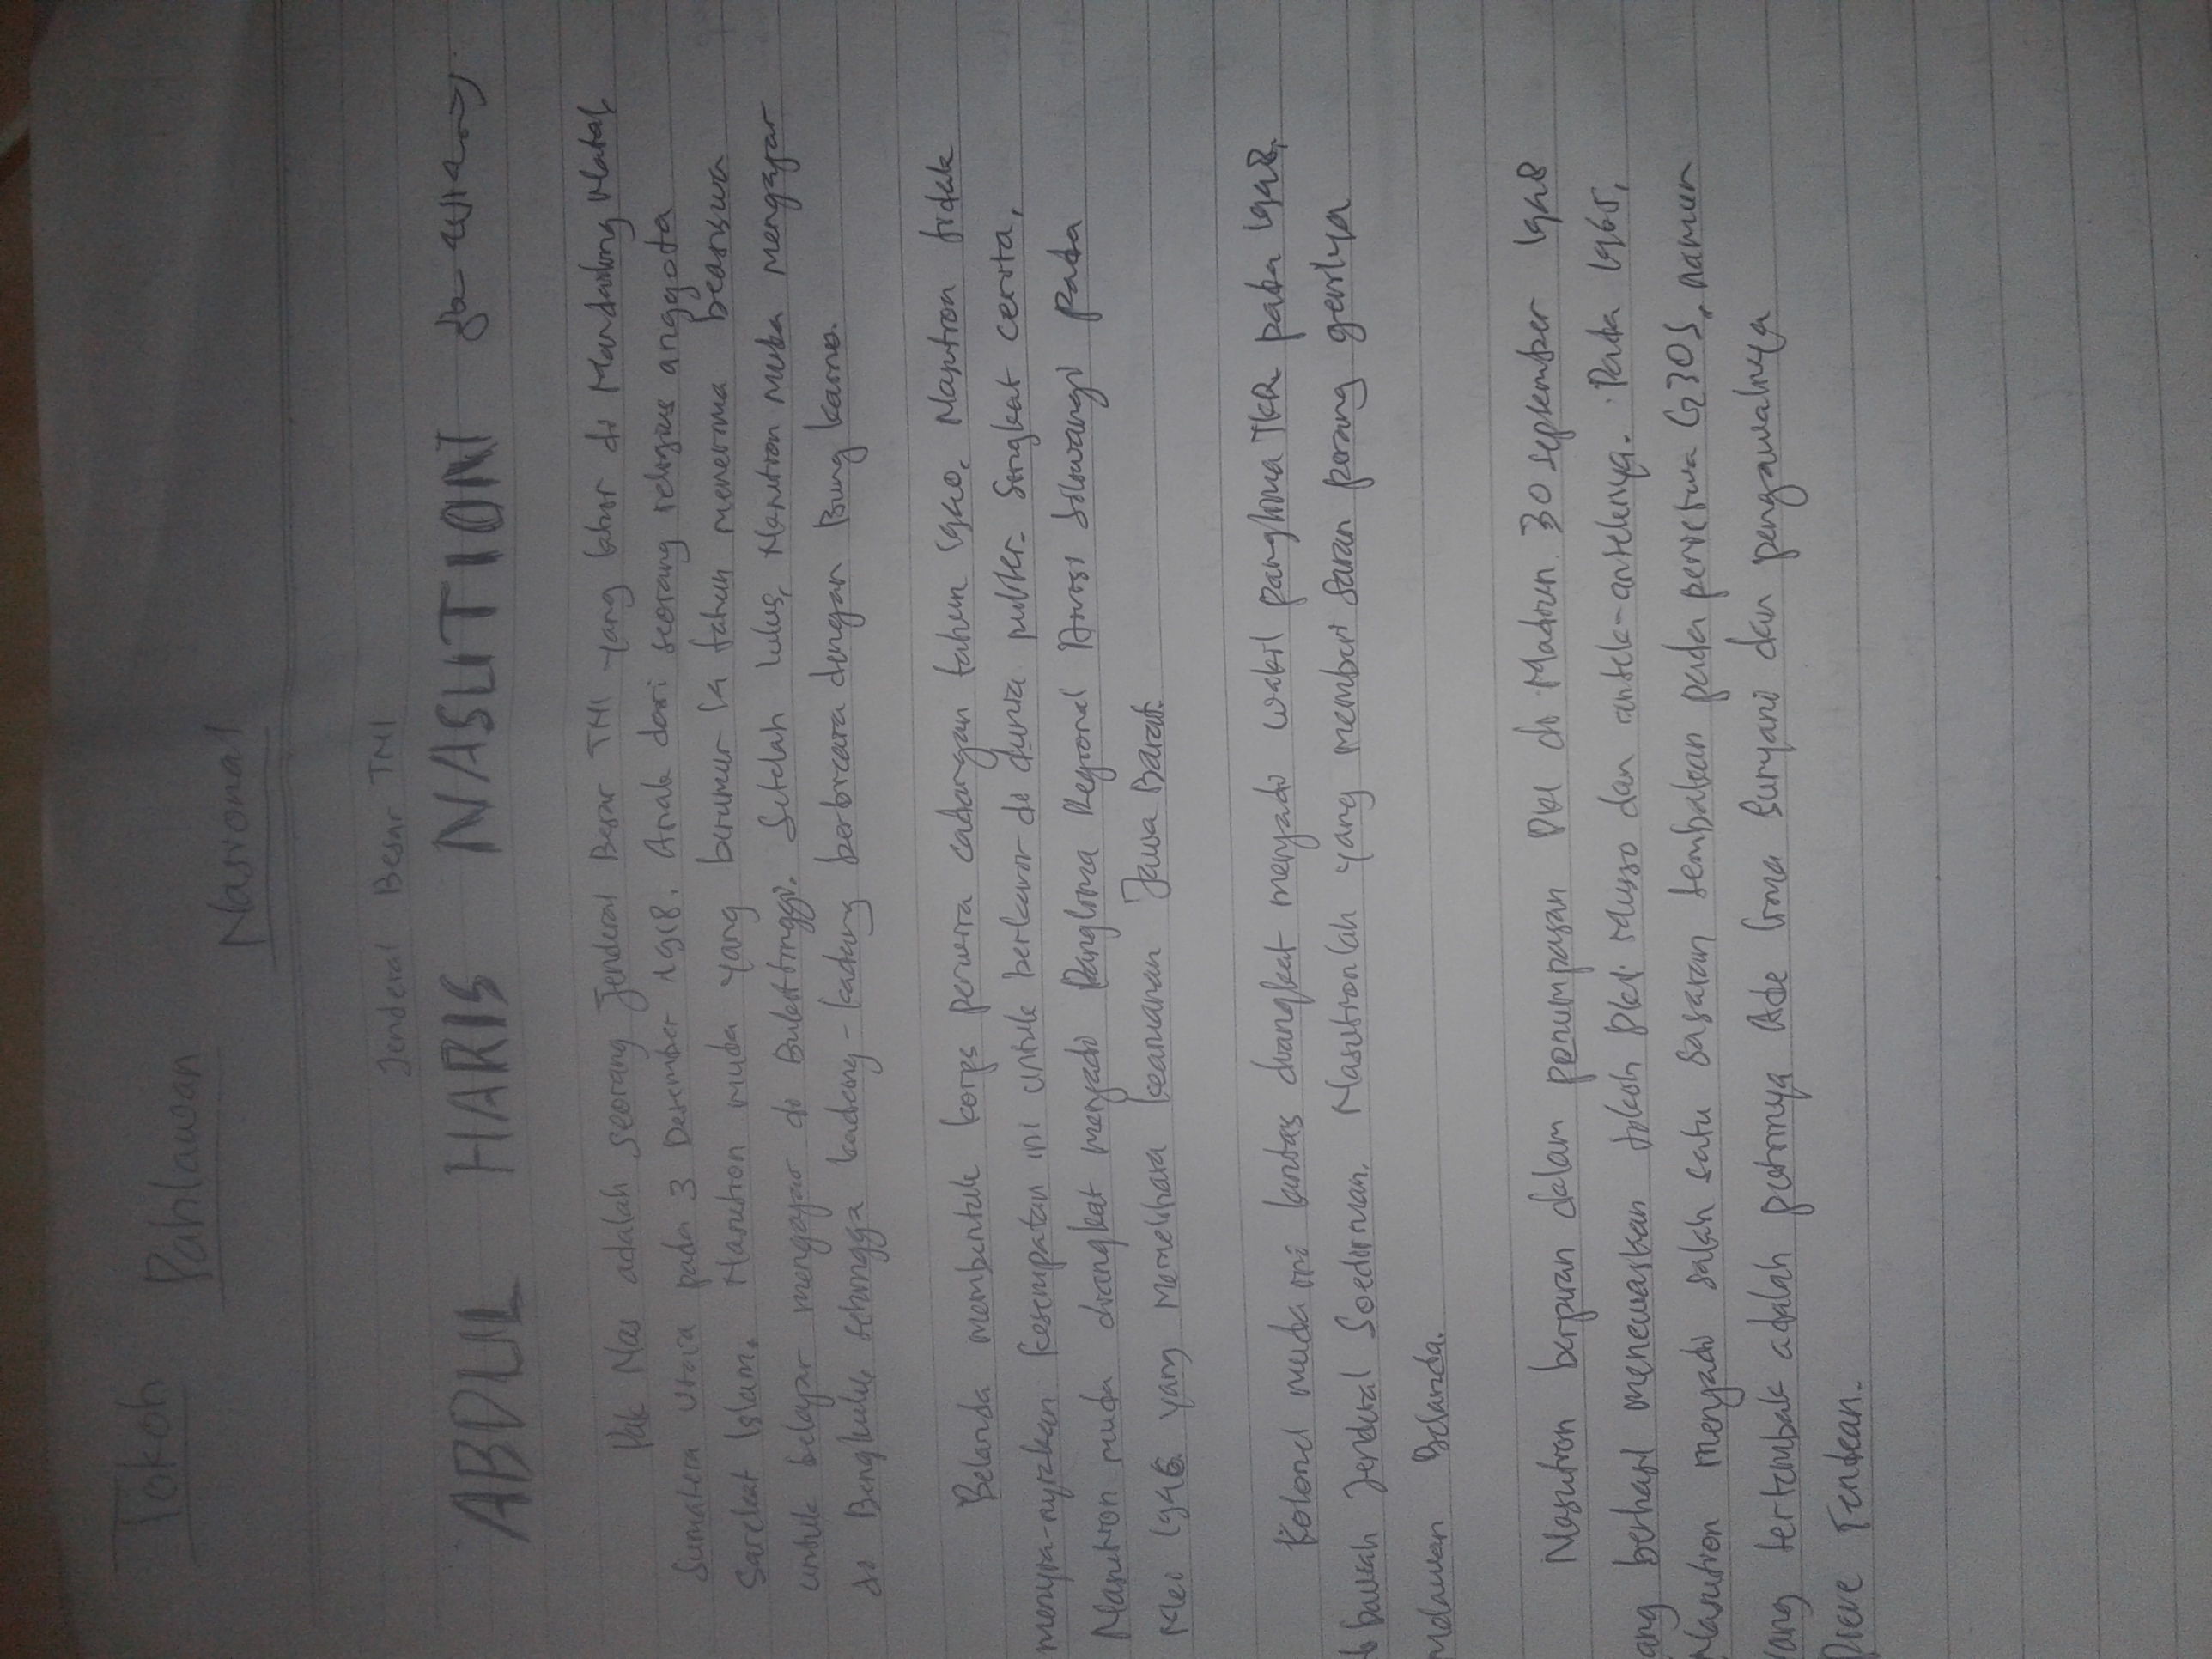 Tokoh
Pahlawan
Nasional
Jenderal Besar TNI
ABDUL HARIS NASUTION
Pak Nas adalah seorang Jenderal Besar TNI yang lahir di Mandailing Natal,
Sumatera Utara pada 3 Desember 1918. Anak dari seorang religius anggota
Sarekat Islam. Nasution muda yang berumur 14 tahun menerima beasiswa
untuk belajar mengajar di Bukittinggi. Setelah lulus, Nasution muda mengajar
di Bengkulu, sehingga kadang-kadang berbicara dengan Bung Karno.
Belanda membentuk korps perwira cadangan tahun 1940, Nasution tidak
menyia-nyiakan kesempatan ini untuk berkarir di dunia militer. Singkat cerita,
Nasution muda diangkat menjadi Panglima Regional Divisi Siliwangi pada
Mei 1946 yang memelihara keamanan Jawa Barat.
Kolonel muda ini lantas diangkat menjadi wakil panglima TKR pada 1948,
bawah Jenderal Soedirman. Nasutionlah yang memberi saran perang gerilya
melawan Belanda.
Nasution berperan dalam penumpasan PKI di Madiun 30 september 1948
ang berhasil menewaskan tokoh PKI Musso dan antek-anteknya. Pada 1965,
Nasution menjadi salah satu sasaran tembakan pada peristiwa G30S, namun
yang tertembak adalah putrinya Ade Irma Suryani dan pengawalnya
Pierre Tendean.